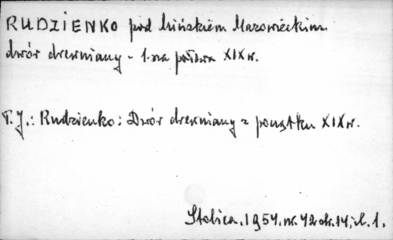 RUDZIENKO pod Mińskiem Mazowieckim
dwór drewniany - 1-sza połowa XIX w.
T. J.: Rudzienko: Dwór drewniany z początku XIX w.
Stolica, 1954, nr. 42 str. 14, il. 1.